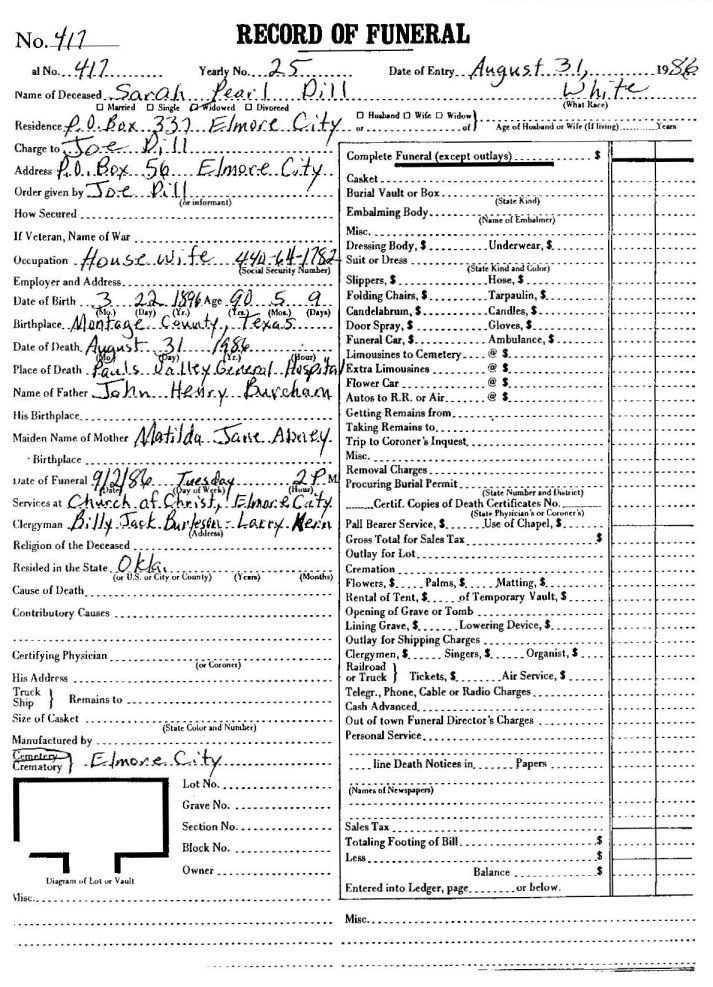 No. 417 RECORD OF FUNERAL
al No. 417 Yearly No. 25 Date of Entry August 31, 1986
Name of Deceased Sarah Pearl Dill White
☐ Married ☐ Single ☑ Widowed ☐ Divorced (What Race)
☐ Husband ☐ Wife ☐ Widow
Residence P.O. Box 337 Elmore City or of Age of Husband or Wife (If living) Years
Charge to Joe Dill
Address P.O. Box 56 Elmore City
Order given by Joe Dill
(or informant)
How Secured
If Veteran, Name of War
Occupation House wife 440-64-1782
(Social Security Number)
Employer and Address
Date of Birth 3 22 1896 Age 90 5 9
(Mo.) (Day) (Yr.) (Yrs.) (Mos.) (Days)
Birthplace Montage County, Texas
Date of Death August 31 1986
(Mo) (Day) (Yr.) (Hour)
Place of Death Pauls Valley General Hospital
Name of Father John Henry Burcham
His Birthplace
Maiden Name of Mother Matilda Jane Abney
Birthplace
Date of Funeral 9/2/86 Tuesday 2 P.M
(Date) (Day of Week) (Hour)
Services at Church of Christ, Elmore City
Clergyman Billy Jack Burleson - Larry
(Address)
Religion of the Deceased
Resided in the State Okla.
(or U.S. or City or County) (Years) (Months)
Cause of Death
Contributory Causes
Certifying Physician
(or Coroner)
His Address
Truck
Ship } Remains to
Size of Casket
(State Color and Number)
Manufactured by
Cemetery
Crematory } Elmore City
Lot No.
Grave No.
Section No.
Block No.
Owner
Diagram of Lot or Vault
Misc.
Complete Funeral (except outlays) $
Casket
Burial Vault or Box
(State Kind)
Embalming Body
(Name of Embalmer)
Misc.
Dressing Body, $ Underwear, $
Suit or Dress
(State Kind and Color)
Slippers, $ Hose, $
Folding Chairs, $ Tarpaulin, $
Candelabrum, $ Candles, $
Door Spray, $ Gloves, $
Funeral Car, $ Ambulance, $
Limousines to Cemetery @ $
Extra Limousines @ $
Flower Car @ $
Autos to R.R. or Air @ $
Getting Remains from
Taking Remains to
Trip to Coroner's Inquest
Misc.
Removal Charges
Procuring Burial Permit
(State Number and District)
Certif. Copies of Death Certificates No.
(State Physician's or Coroner's)
Pall Bearer Service, $ Use of Chapel, $
Gross Total for Sales Tax $
Outlay for Lot
Cremation
Flowers, $ Palms, $ Matting, $
Rental of Tent, $ of Temporary Vault, $
Opening of Grave or Tomb
Lining Grave, $ Lowering Device, $
Outlay for Shipping Charges
Clergymen, $ Singers, $ Organist, $
Railroad
or Truck } Tickets, $ Air Service, $
Telegr., Phone, Cable or Radio Charges
Cash Advanced
Out of town Funeral Director's Charges
Personal Service
line Death Notices in Papers
(Names of Newspapers)
Sales Tax
Totaling Footing of Bill $
Less $
Balance $
Entered into Ledger, page or below.
Misc.